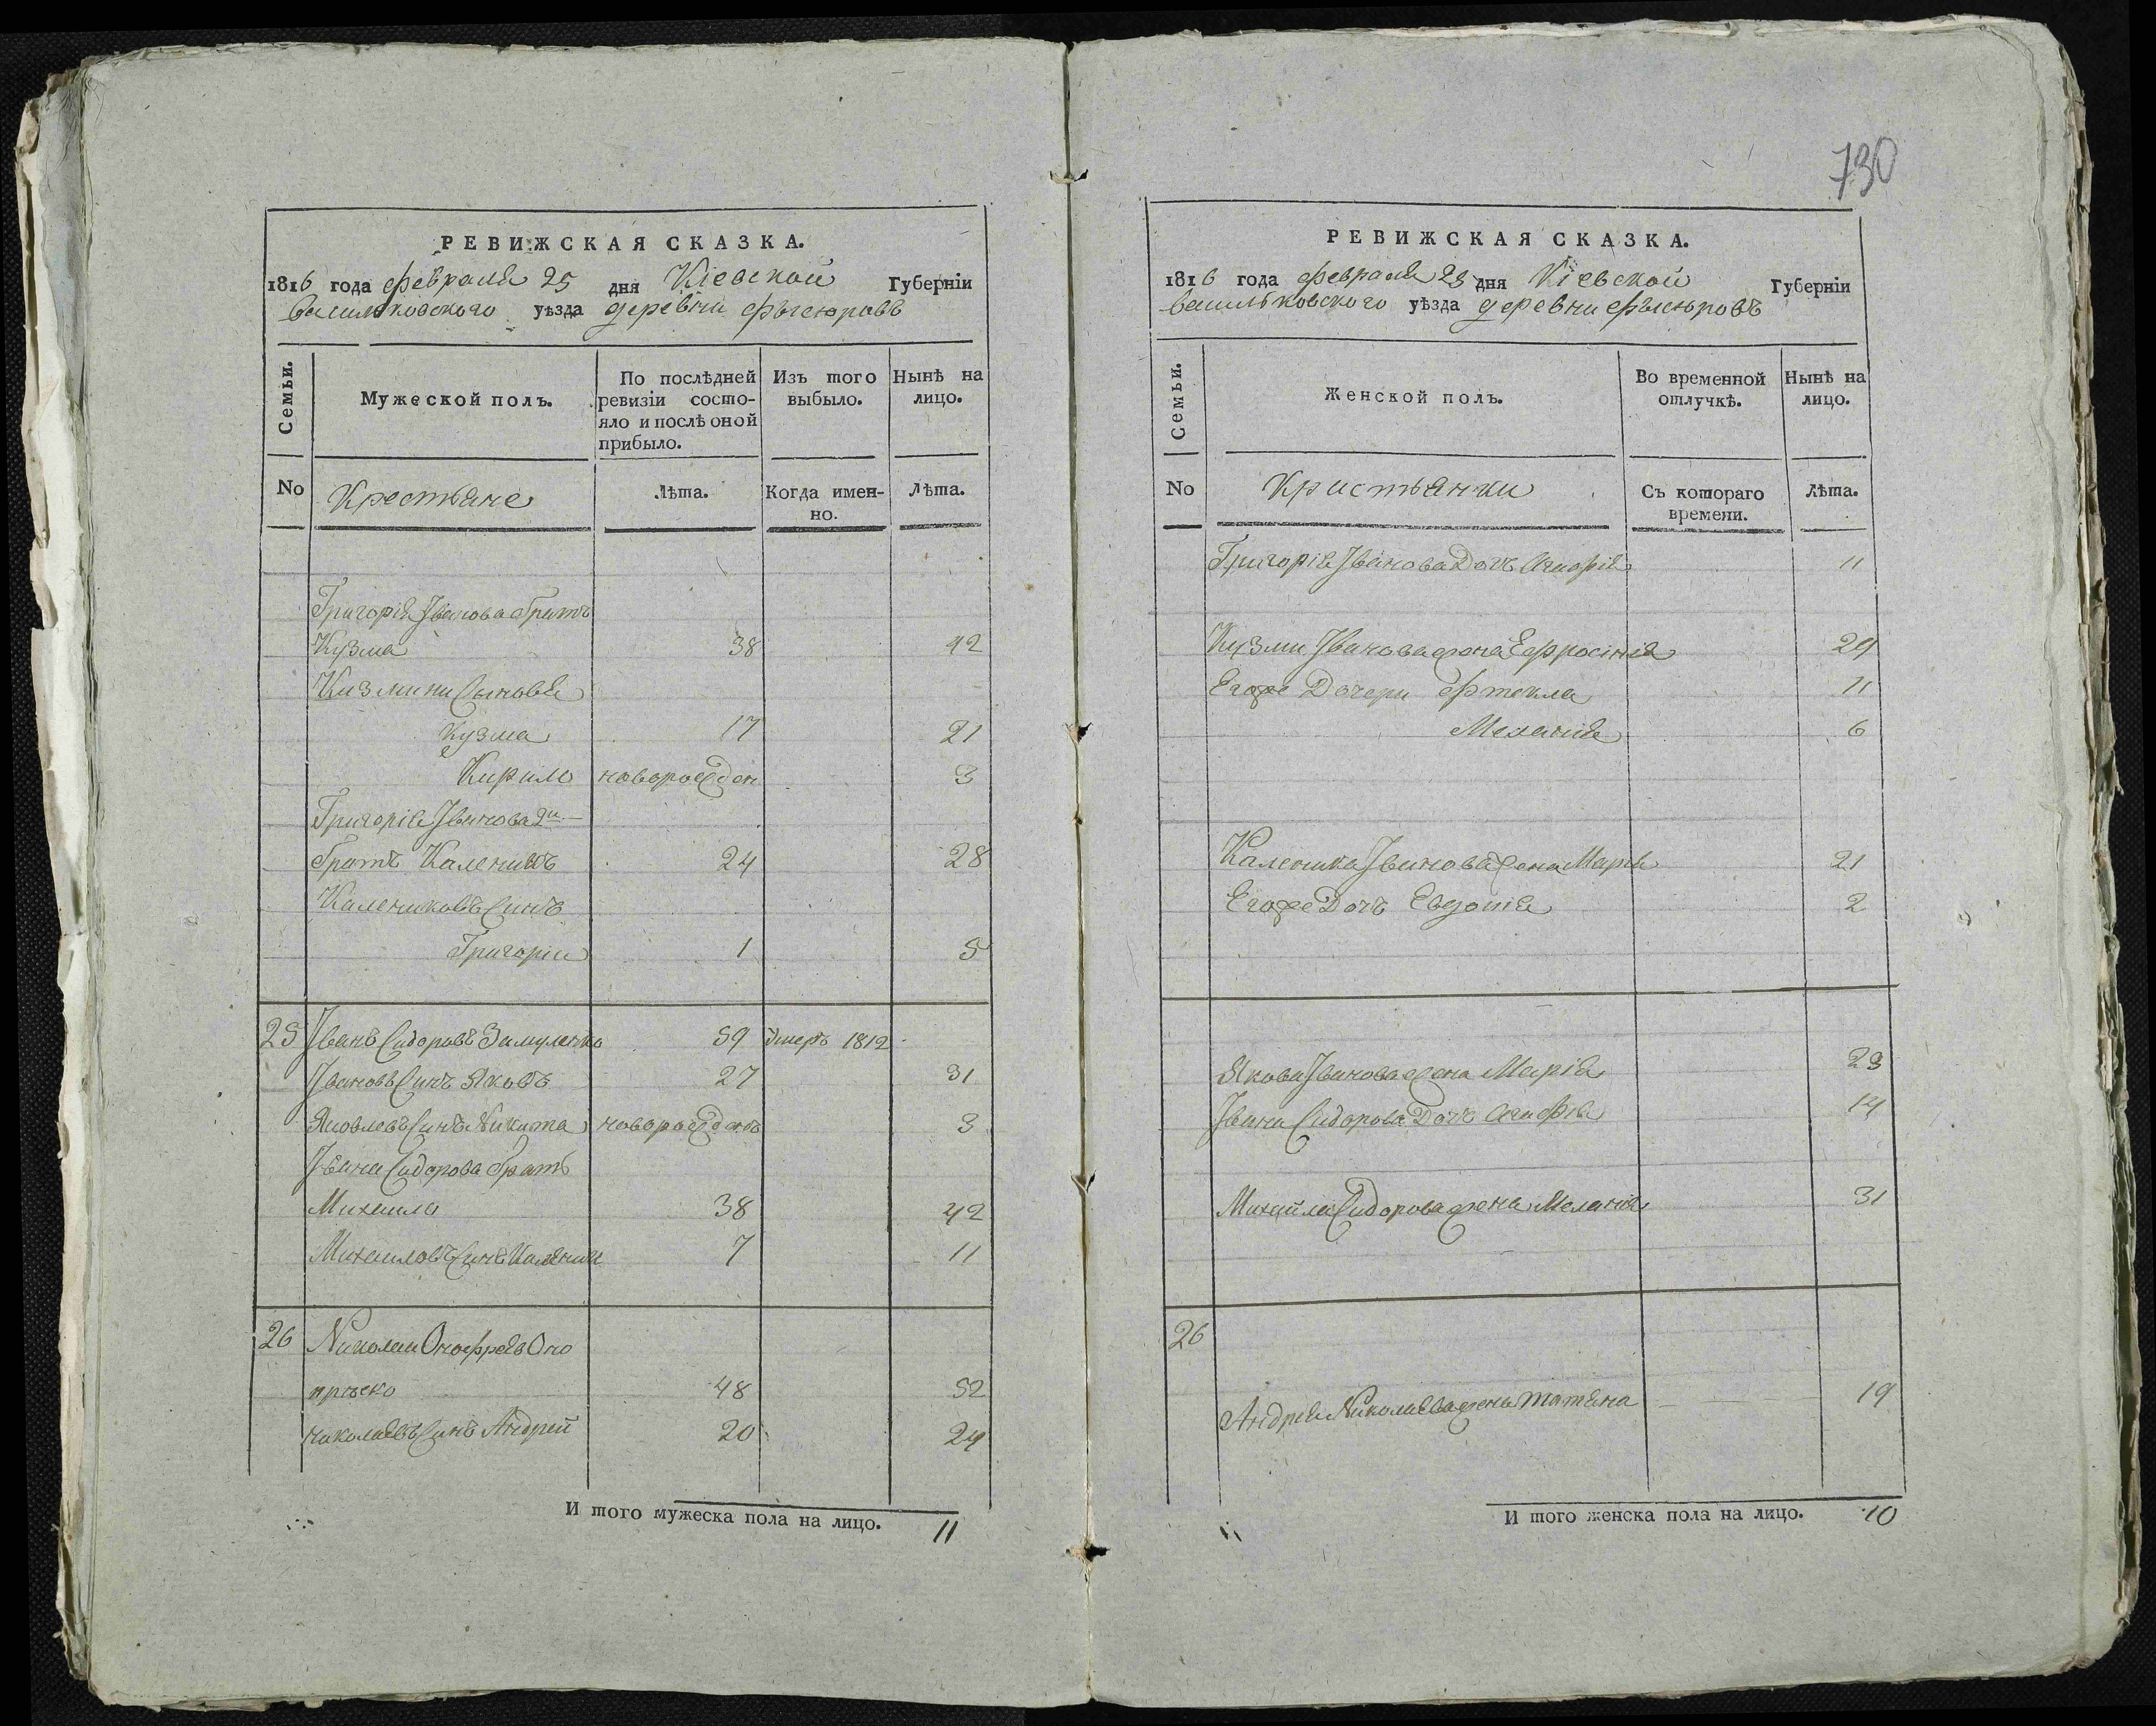 РЕВИЖСКАЯ СКАЗКА.
1816 года февраля 25 дня Кіевской Губерніи
васильковского уѣзда деревни
Семьи.
Мужеской полъ.
По послѣдней ревизіи состо-
яло и послѣ оной прибыло.
Изъ того выбыло.
Нынѣ на лицо.
No
Крестьяне
Лѣта.
Когда имен-
но.
Лѣта.
Григорія Іванова братъ
Кузма 38 42
Кузмини Сыновья
Кузма 17 21
Кирило новорожден 3
Григорія Іванова 2й
братъ Каленикъ 24 28
Калениковъ Синъ
Григории 1 5
25 Іванъ Сидоровъ 59 Умеръ 1812
Івановъ Синъ Яковъ 27 31
Яковлевъ Синъ Никита новорожденъ 3
Івана Сидорова братъ
Михаило 38 42
Михаиловъ Синъ 7 11
26 Николаи Онофреевъ Оно
пріенко 48 52
николаевъ Синъ Андрей 20 24
И того мужеска пола на лицо. 11
730
РЕВИЖСКАЯ СКАЗКА.
1816 года февраля 25 дня Кіевской Губерніи
васильковского уѣзда деревни
Семьи.
Женской полъ.
Во временной отлучкѣ.
Нынѣ на лицо.
No
Кристьянки
Съ котораго
времени.
Лѣта.
Григорія Іванова Дочъ Агафія 11
Кузми Іванова жона Ефросинія 29
Егоже Дочери Фтекла 11
Меланія 6
Каленика Іванова жена Марія 21
Егоже Дочъ Евдотія 2
Якова Іванова жена Марія 23
Івана Сидорова Дочъ Агафія 14
Михайла Сидорова жена Меланія 31
26
Андрея Николаева жена Татяна 19
И того женска пола на лицо. 10